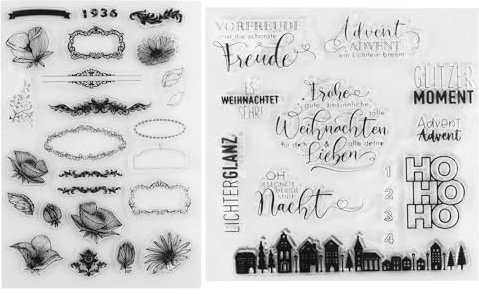 1936
VORFREUDE
ist die schönste
Freude
Advent
ADVENT
ein Lichtlein brennt
GLITZER
MOMENT
ES
WEIHNACHTET
SEHR!
Frohe
gute besinnliche
Weihnachten
für dich & alle deine
Lieben
Advent
Advent
LICHTERGLANZ
OH
Nacht
1
2
3
4
HO
HO
HO